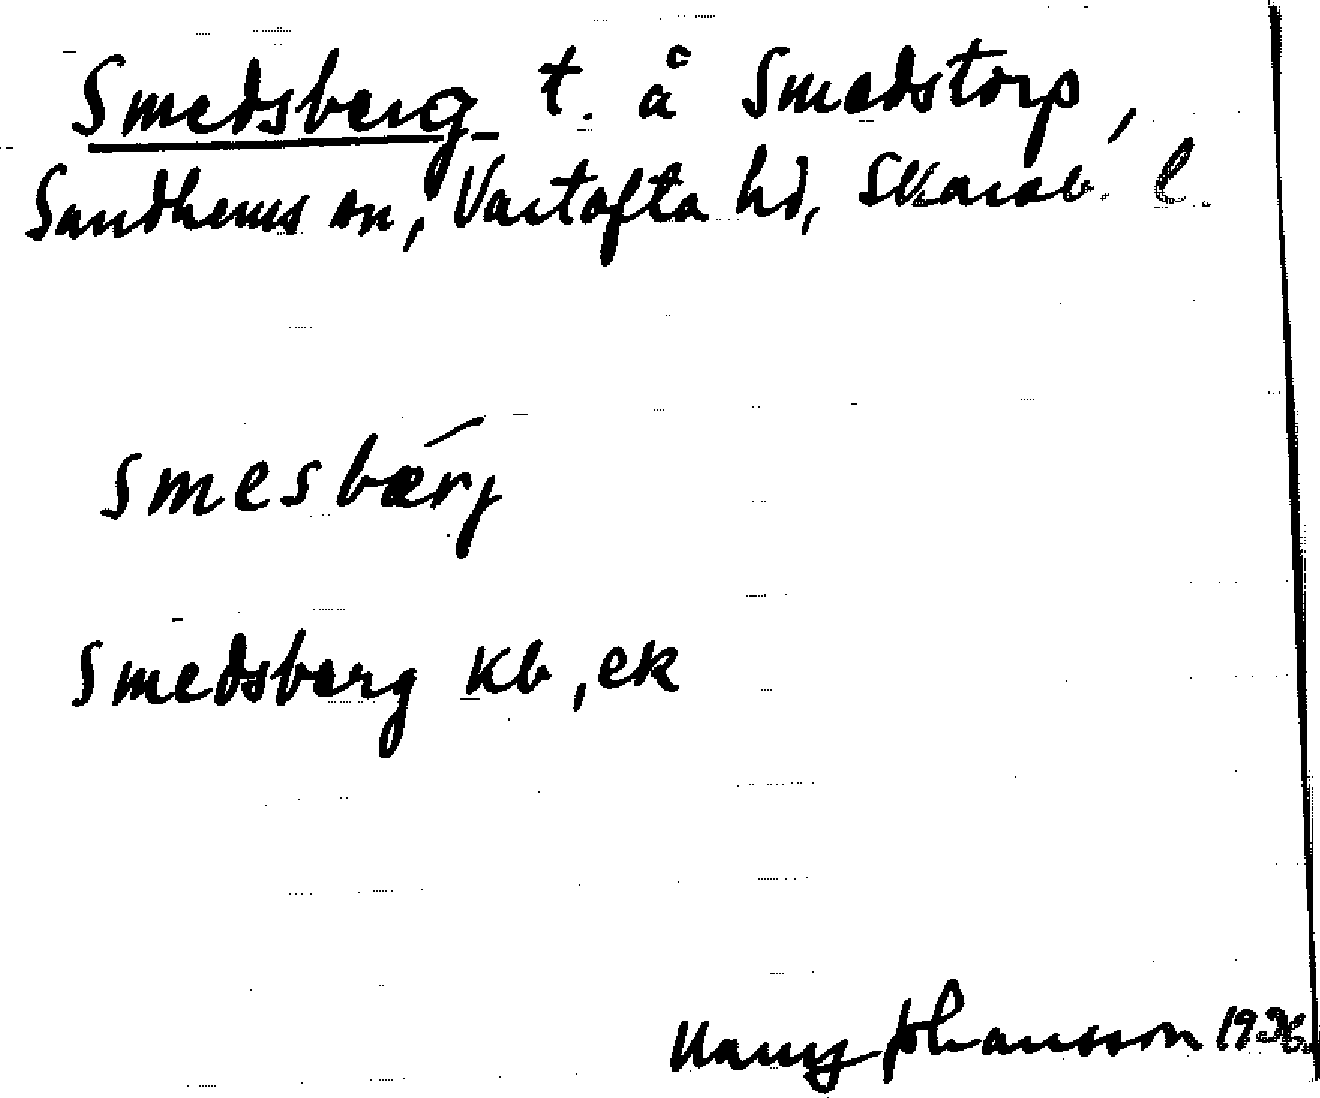 Smedsberg t. å Smedstorp,
Sandhems sn, Vartofta hd, Skarab. l.
smesbærj
Smedsberg kb, ek
Harry Johansson